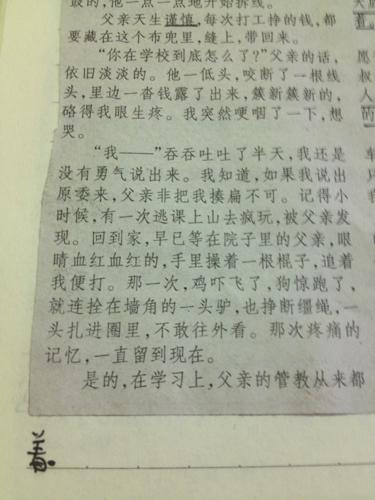 的,他一点一点地开始拆线。
父亲天生谨慎,每次打工挣的钱,都
要藏在这个布兜里,缝上,带回来。
“你在学校到底怎么了?”父亲的话,
依旧淡淡的。他一低头,咬断了一根线
头,里边一沓钱露了出来,簇新簇新的,
硌得我眼生疼。我突然哽咽了一下,想
哭。
“我——”吞吞吐吐了半天,我还是
没有勇气说出来。我知道,如果我说出
原委来,父亲非把我揍扁不可。记得小
时候,有一次逃课上山去疯玩,被父亲发
现。回到家,早已等在院子里的父亲,眼
睛血红血红的,手里操着一根棍子,追着
我便打。那一次,鸡吓飞了,狗惊跑了,
就连拴在墙角的一头驴,也挣断缰绳,一
头扎进圈里,不敢往外看。那次疼痛的
记忆,一直留到现在。
是的,在学习上,父亲的管教从来都